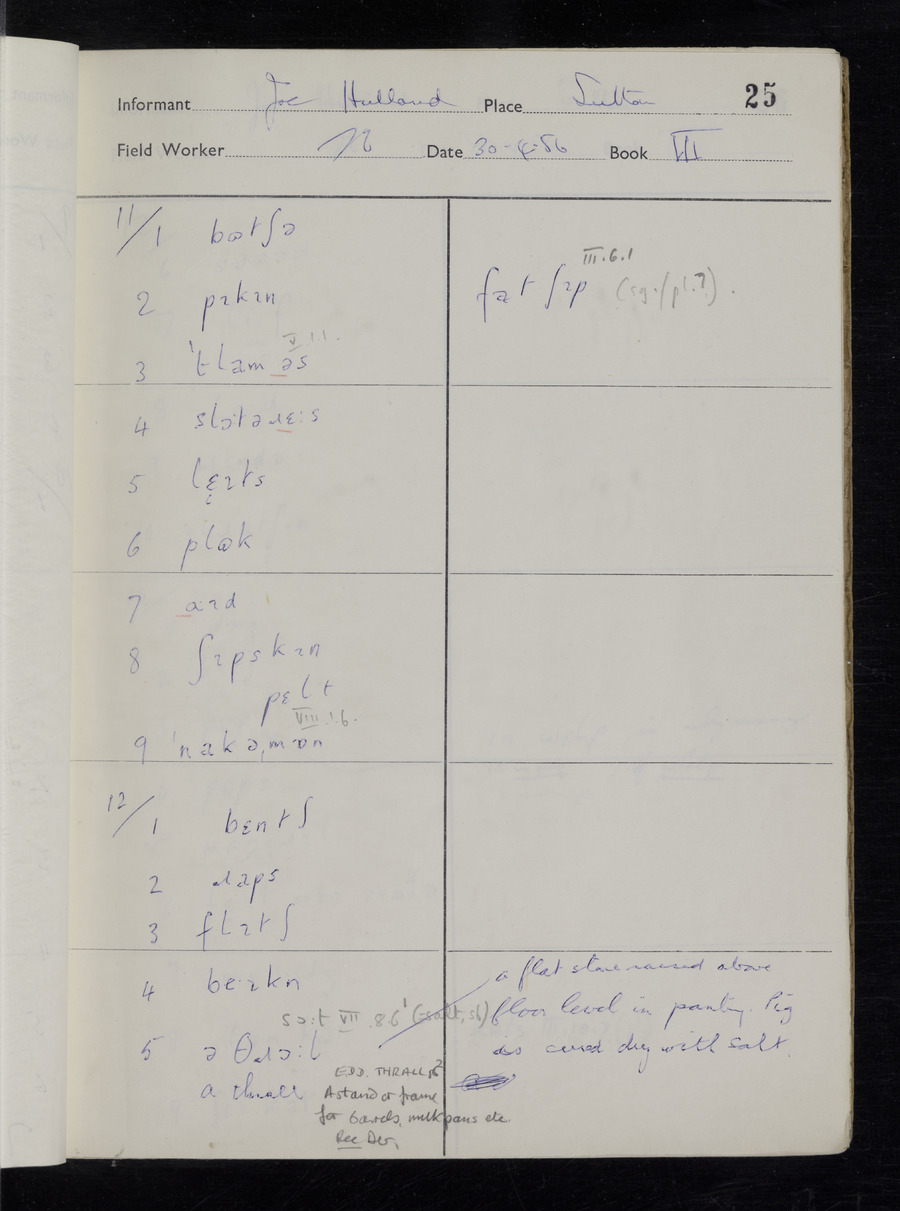 Informant Joe Hulland Place Sutton 25
Field Worker Date 30-4-56 Book III
11/1 bɷtʃə
2 pɪkɪn
fat ʃɪp (sg./pl.?).
III.6.1
V 1.1.
3 ˈtlaməs
4 slɔːtəɹɛːs
5 lɛɪts
6 plɷk
7 aɪd
8 ʃɪpskɪn
pɛlt
VIII.1.6.
9 ˈnakəˌmɒn
12/1 bɛntʃ
2 ɹaps
3 flɪtʃ
4 beːɪkn
a flat stone raised above
sɔːt VII.8.6¹ (=salt, sb) floor level in pantry. Pig
5 ə θɹɔːl
was cured dry with salt.
a thrall
E.D.D. THRALL sb²
A stand or frame
for barrels, milk pans etc.
Rec Der,